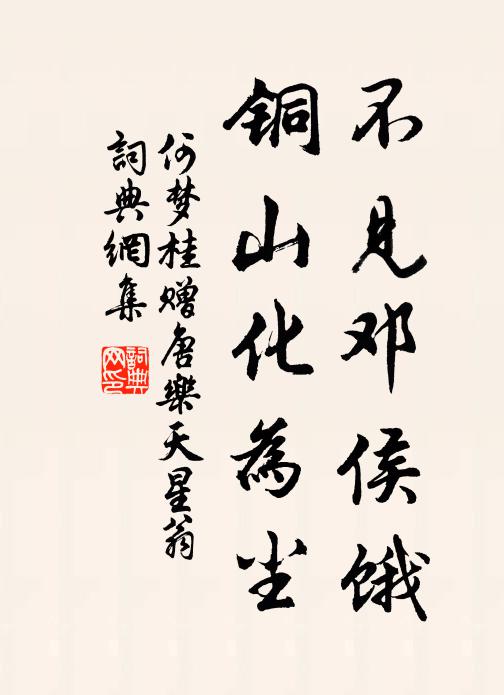 不見邓侯饿
铜山化為尘
何梦桂赠唐樂天星翁
詞典網集
詞典
网印